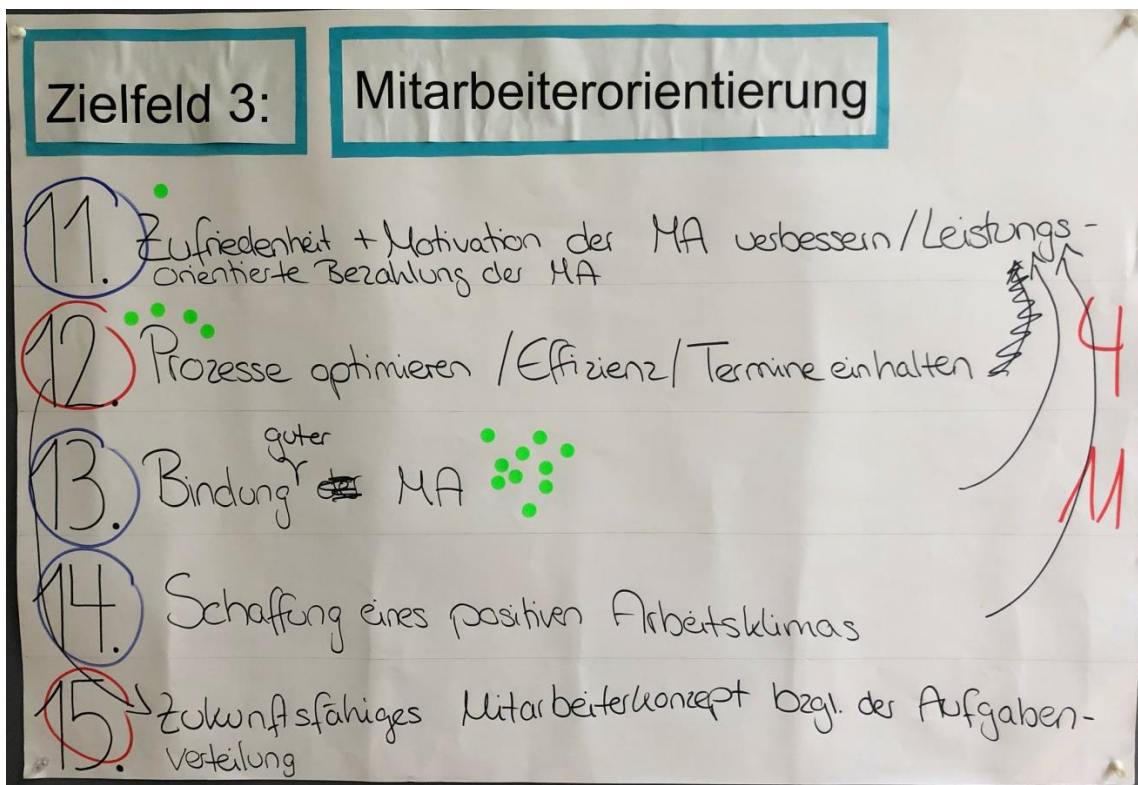 Zielfeld 3:
Mitarbeiterorientierung
11. Zufriedenheit + Motivation der MA verbessern / Leistungs-
orientierte Bezahlung der MA
12. Prozesse optimieren / Effizienz / Termine einhalten
4
guter
13. Bindung MA
M
14. Schaffung eines positiven Arbeitsklimas
15. Zukunftsfähiges Mitarbeiterkonzept bzgl. der Aufgaben-
verteilung